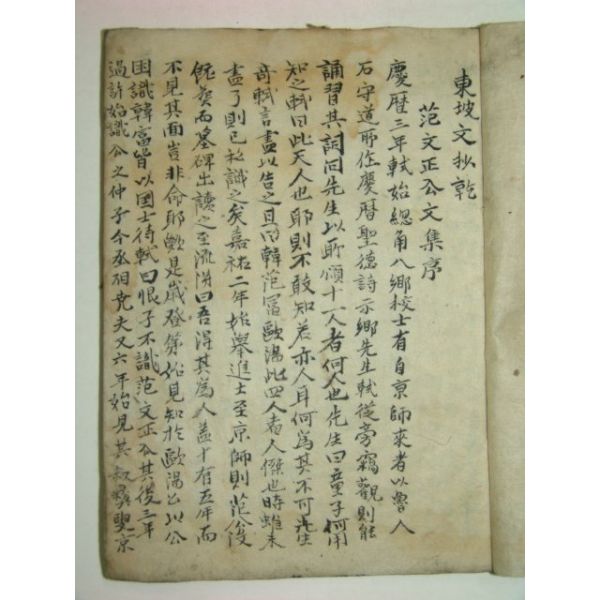 東坡文抄乾
范文正公文集序
慶曆三年軾始總角入鄉校士有自京師來者以魯人
石守道所作慶曆聖德詩示鄉先生軾從旁竊觀則能
誦習其詞問先生以所頌十一人者何人也先生曰童子何用
知之軾曰此天人也耶則不敢知若亦人耳何爲其不可先生
奇軾言盡以告之且曰韓范富歐陽此四人者人傑也時雖未
盡了則已私識之矣嘉祐二年始擧進士至京師則范公沒
旣葬而墓碑出讀之至流涕曰吾得其爲人蓋十有五年而
不見其面豈非命耶歟是歲登第始見知於歐陽公以公
因識韓富皆以國士待軾曰恨子不識范文正公其後三年
過許始識公之仲子今丞相堯夫又六年始見其叔彝叟京